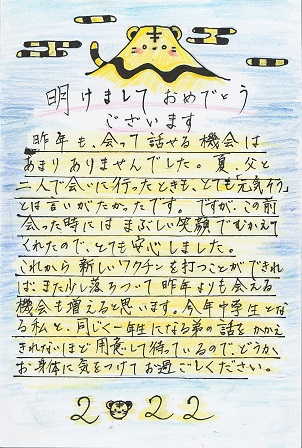 明けまして おめでとう
ございます
昨年も、会って話せる機会は
あまりありませんでした。夏、父と
二人で会いに行ったときも、とても「元気そう」
とは言いがたかったです。ですが、この前
会った時には まぶしい笑顔でむかえて
くれたので、とても安心しました。
これから新しいワクチンを打つことができれ
ば、また少し落ちついて昨年よりも会える
機会も増えると思います。今年中学生とな
る私と、同じく一年生になる弟の話をかかえ
きれないほど用意して待っているので、どうか、
お身体に気をつけてお過ごしください。
2022